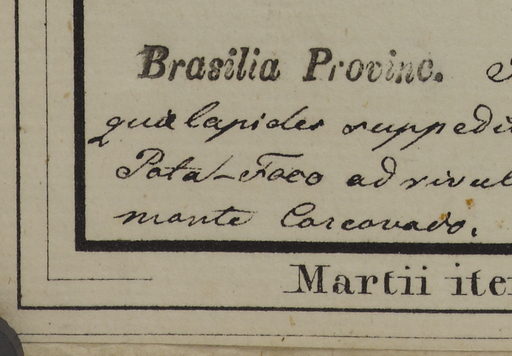 Brasilia Provinc.
quae lapides suppedi
Pota-Foco ad rivul
monte Corcovado.
Martii ite